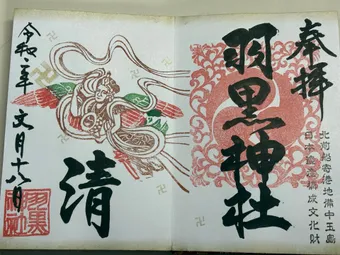 奉拝
北前船寄港地備中玉島
日本遺産構成文化財
羽黒神社
清
令和二年 文月十八日
羽黒
神社